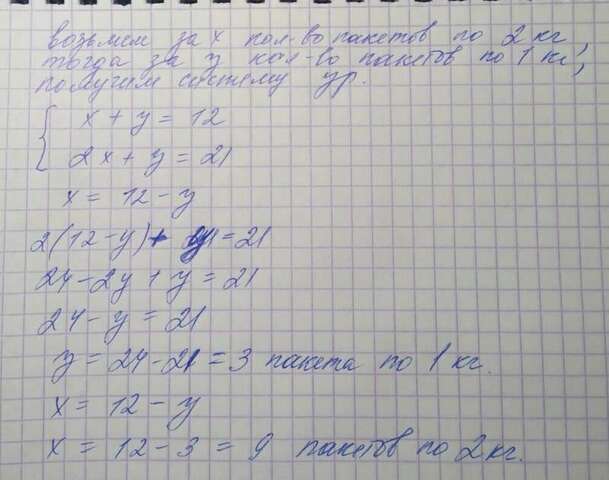 возьмем за x кол-во пакетов по 2 кг,
тогда за y кол-во пакетов по 1 кг,
получим систему ур.
x + y = 12
2x + y = 21
x = 12 - y
2(12-y) + y = 21
24 - 2y + y = 21
24 - y = 21
y = 24 - 21 = 3 пакета по 1 кг.
x = 12 - y
x = 12 - 3 = 9 пакетов по 2 кг.